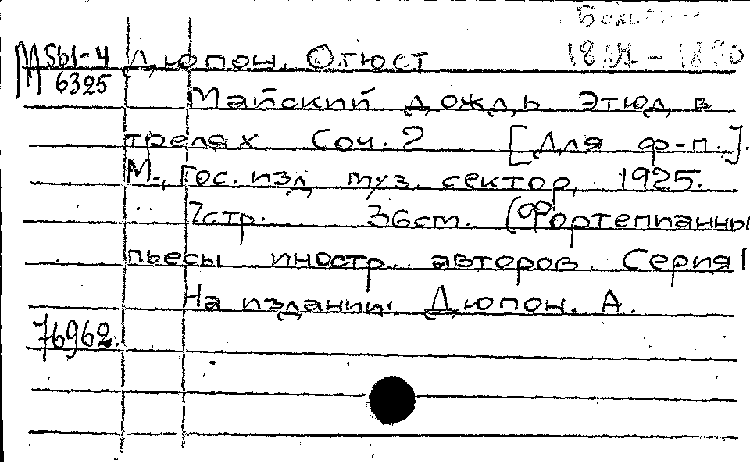 М561-4 Дюпон. Огюст
6325
Майский дождь. Этюд в
трелях Соч. 2 [Для ф-п.].
М., Гос. изд. муз. сектор, 1925.
7стр. 36см. (Фортепианны
пьесы иностр. авторов. Серия I
На издании: Дюпон. А.
76962.